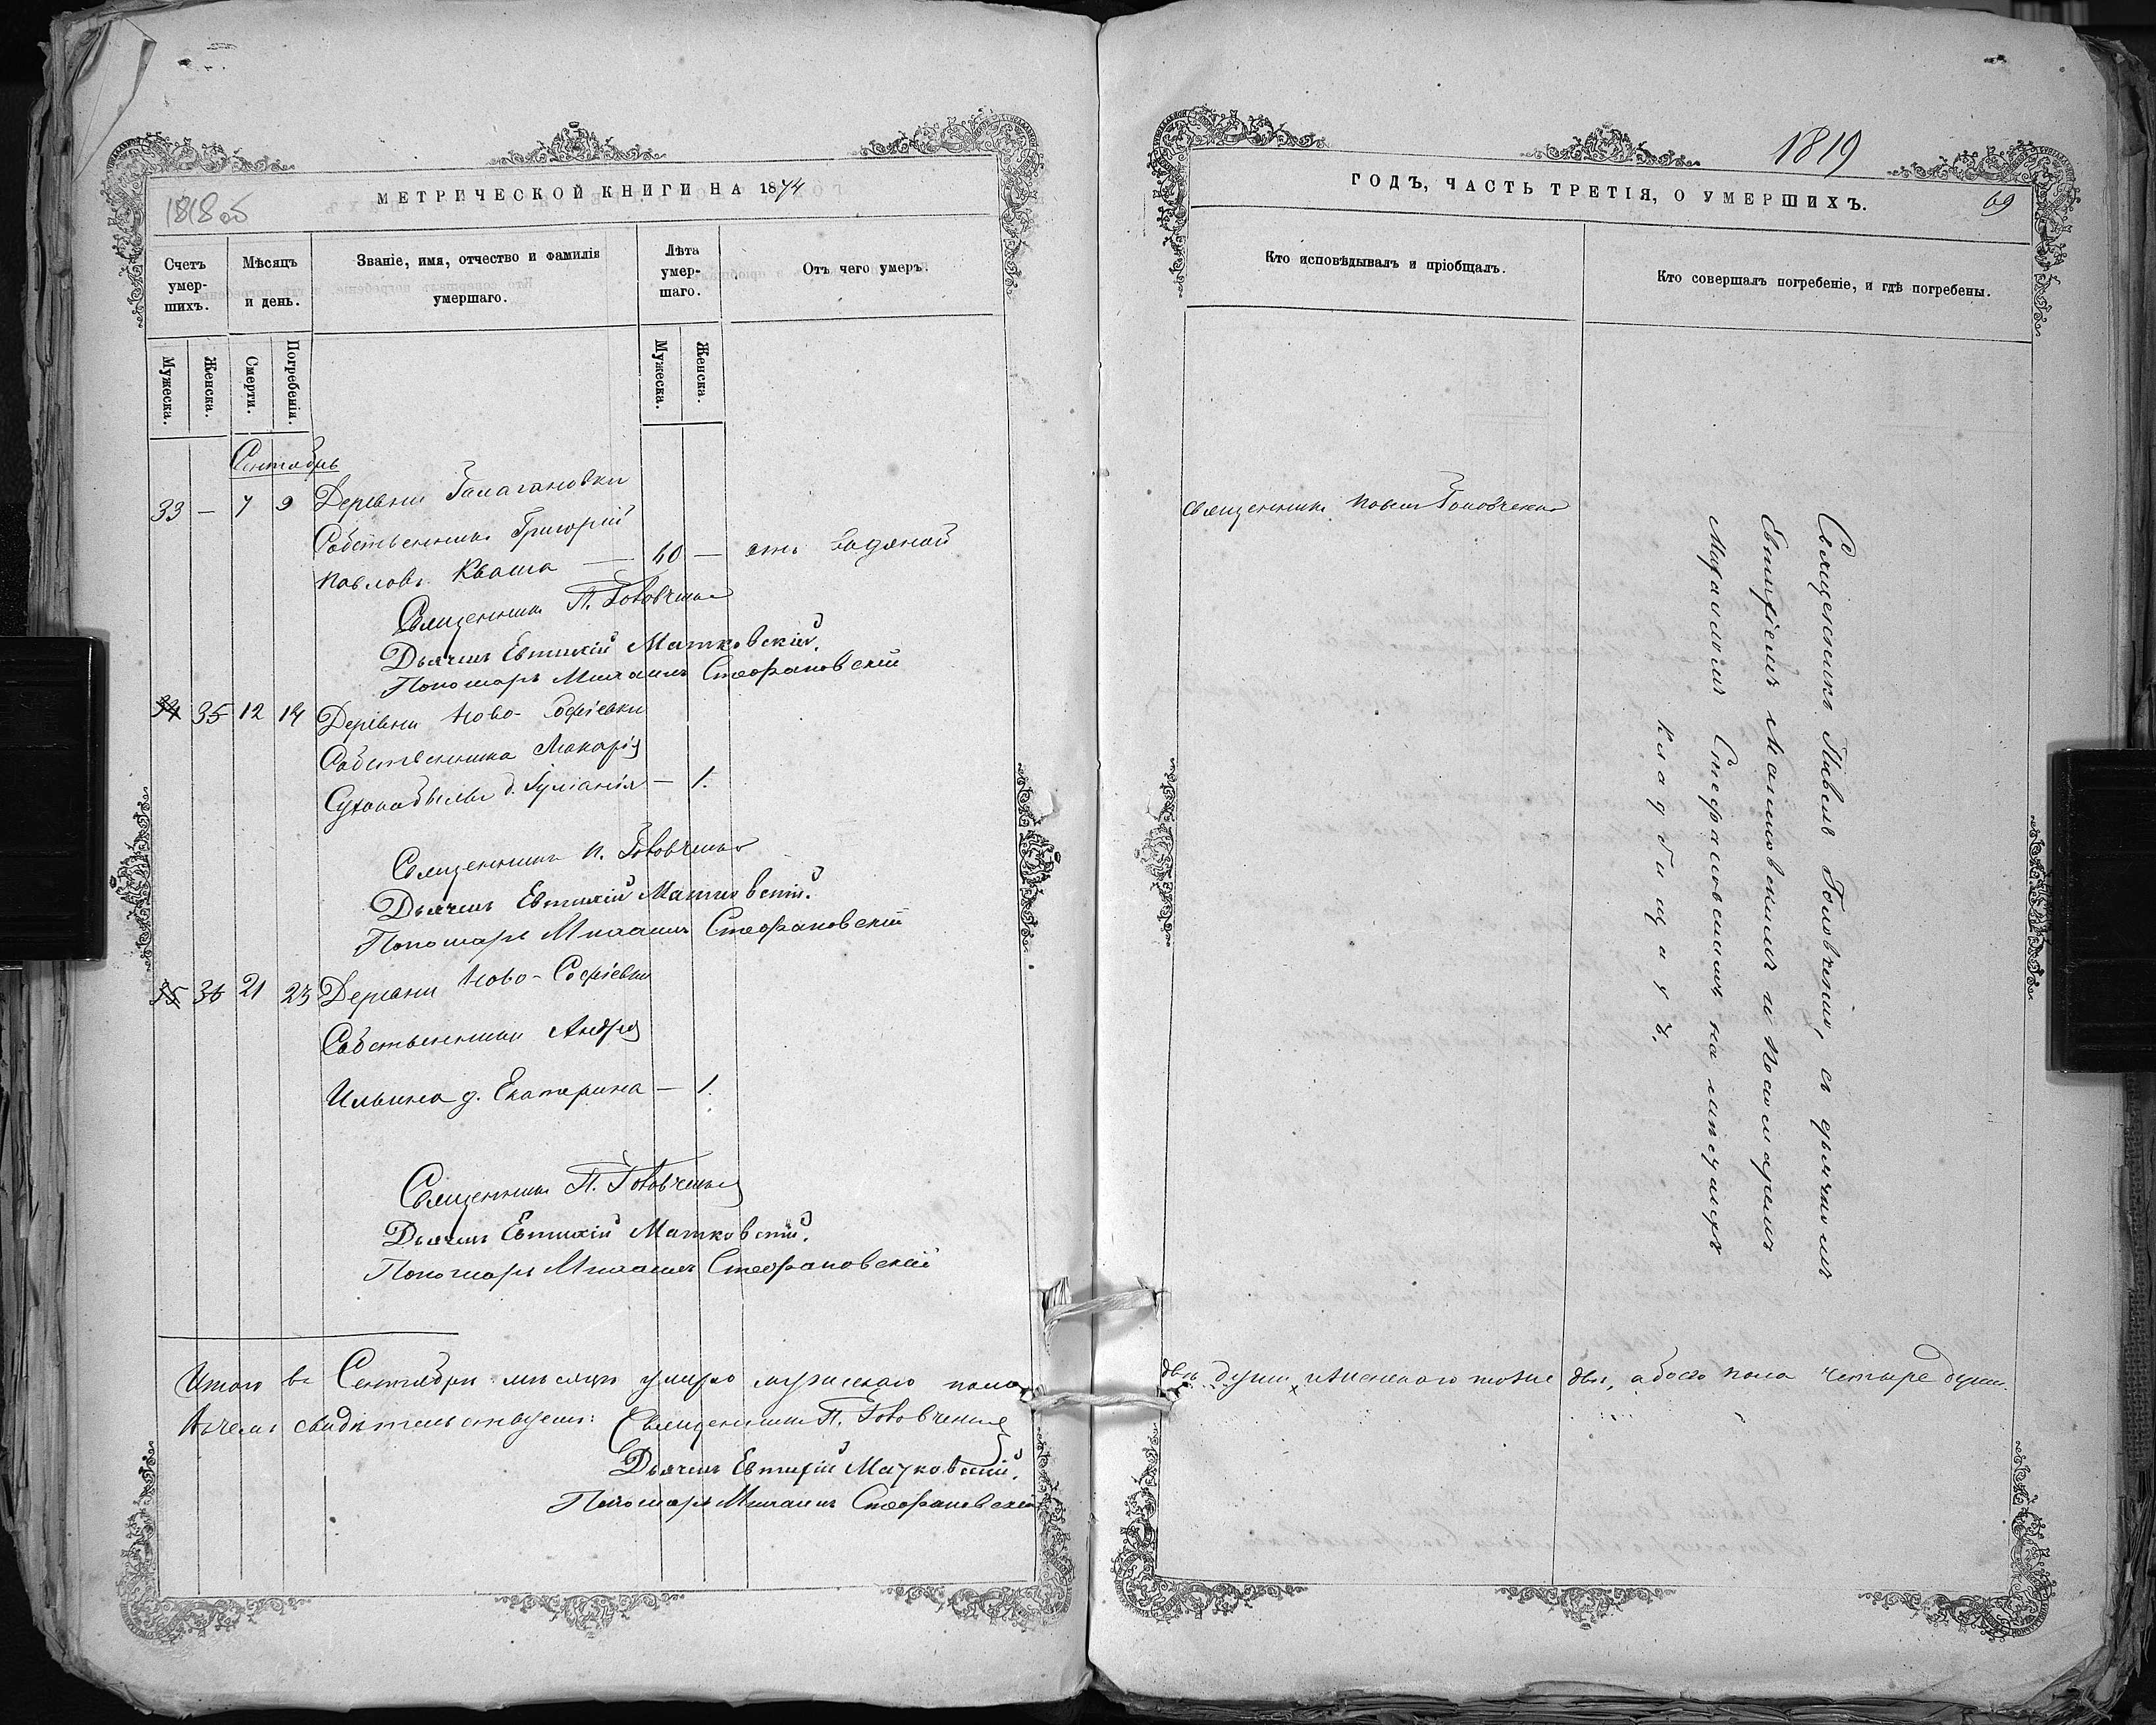 1818 об
МЕТРИЧЕСКОЙ КНИГИ НА 1874
Счетъ умер-шихъ.
Мѣсяцъ и день.
Званіе, имя, отчество и фамилія умершаго.
Лѣта умер-шаго.
Отъ чего умеръ.
Мужеска.
Женска.
Смерти.
Погребенія.
Мужеска.
Женска.
Сентябрь
33 — 7 9 Деревни
Собственникъ Григорій
Павловъ Кваша — 60 — отъ водяной
Священникъ П. Головченко
Дьячекъ Евтихій Матковскій.
Пономарь Михаилъ Стефановскій
34 35 12 14 Деревни Ново-Софіевки
Собственника Макарія
д. Іуліанія — 1.
Священникъ П. Головченко
Дьячекъ Евтихій Матковскій.
Пономарь Михаилъ Стефановскій
35 36 21 23 Деревни Ново-Софіевки
Собственника Андрея
Ильина д. Екатерина — 1.
Священникъ П. Головченко
Дьячекъ Евтихій Матковскій.
Пономарь Михаилъ Стефановскій
Итого въ Сентябрѣ мѣсяцѣ умерло мужескаго пола
В чемъ свидѣтельствуемъ: Священникъ П. Головченко
Дьячекъ Евтихій Матковскій.
Пономарь Михаилъ Стефановскій
1819
ГОДЪ, ЧАСТЬ ТРЕТІЯ, О УМЕРШИХЪ.
69
Кто исповѣдывалъ и пріобщалъ.
Кто совершалъ погребеніе, и гдѣ погребены.
Священникъ Павелъ Головченко
Священникъ Павелъ Головченко, съ дьячкомъ
Евтихіемъ Матковскимъ и Пономаремъ
Михаиломъ Стефановскимъ на
кладбищахъ.
двѣ души, женскаго тоже двѣ, обоего пола четыре души.